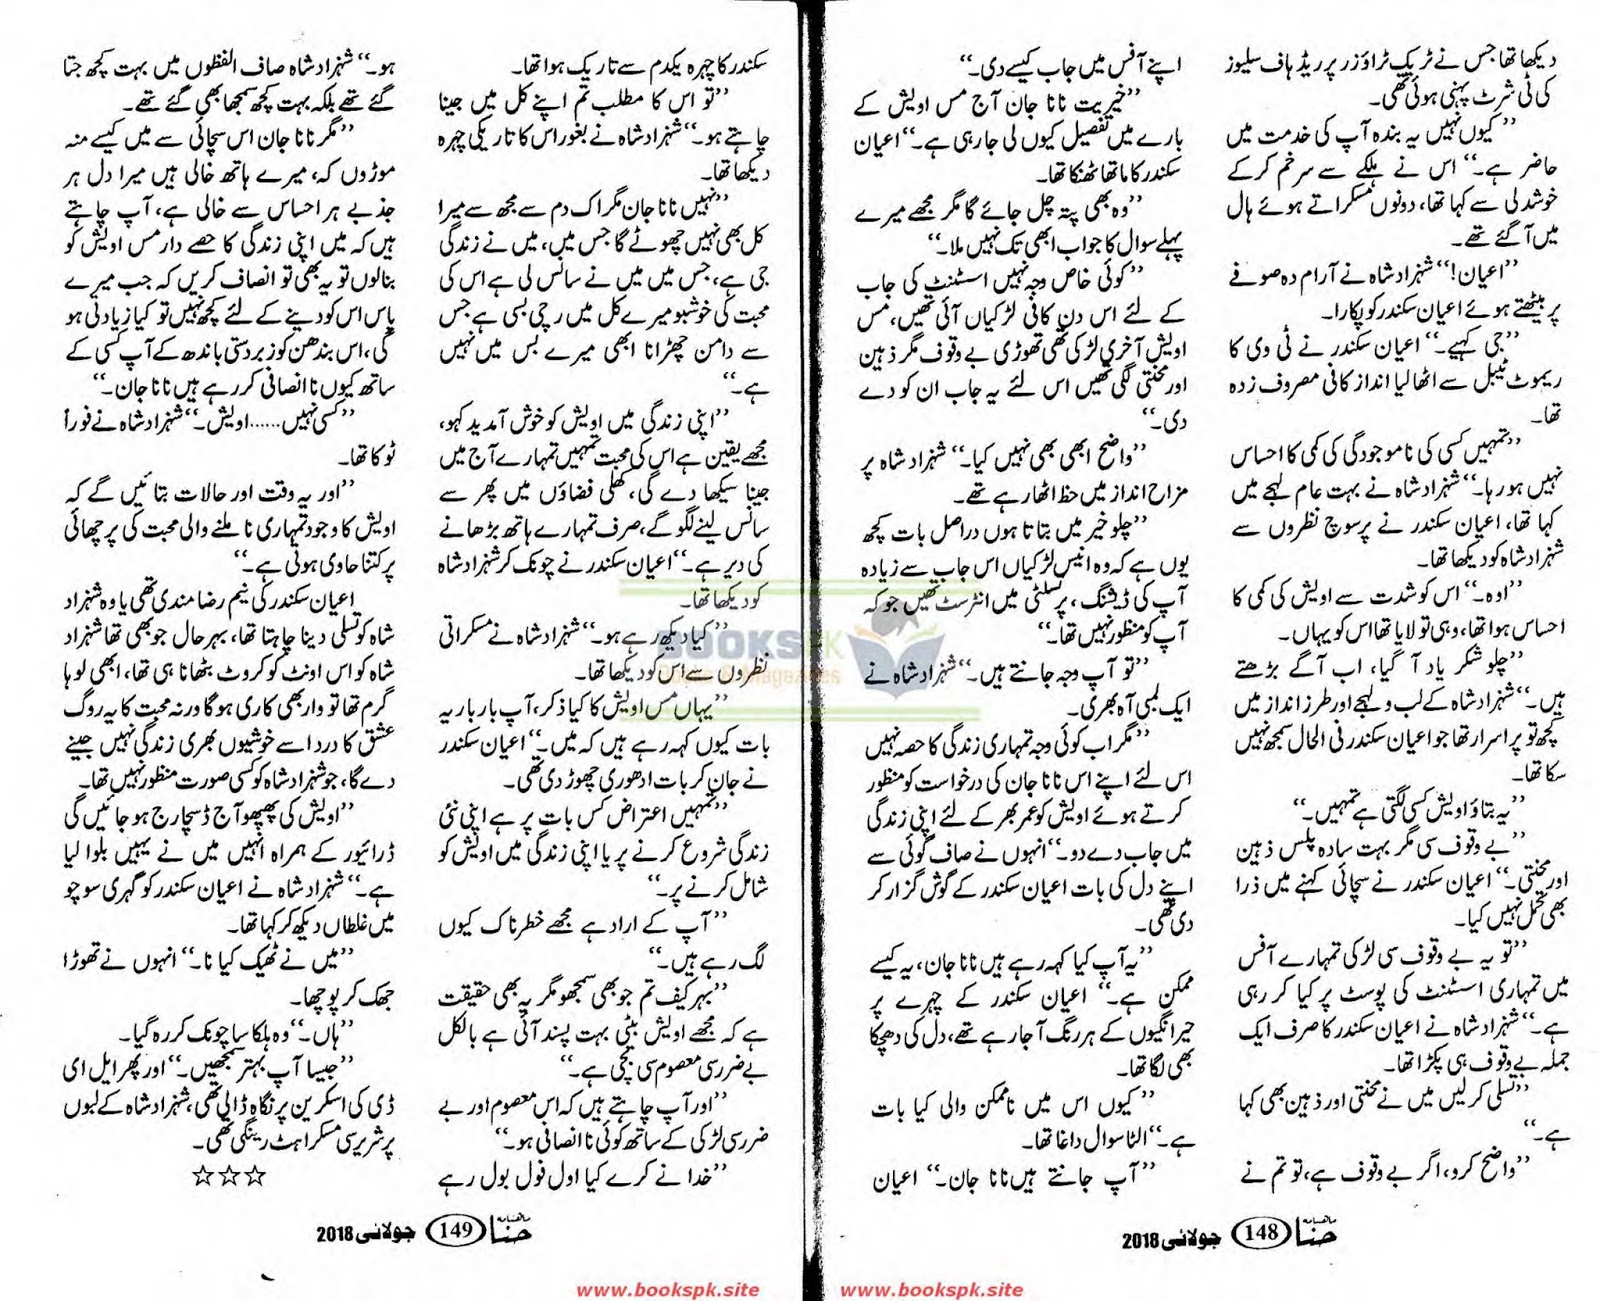 دیکھا تھا جس نے ٹریک ٹراؤزر پر ریڈ ہاف سلیوز
کی ٹی شرٹ پہنی ہوئی تھی۔
’’کیوں نہیں یہ بندہ آپ کی خدمت میں
حاضر ہے۔‘‘ اس نے ہلکے سے سر خم کر کے
خوشدلی سے کہا تھا، دونوں مسکراتے ہوئے ہال
میں آ گئے تھے۔
’’اعیان!‘‘ شہزاد شاہ نے آرام دہ صوفے
پر بیٹھتے ہوئے اعیان سکندر کو پکارا۔
’’جی کہیے۔‘‘ اعیان سکندر نے ٹی وی کا
ریموٹ ٹیبل سے اٹھا لیا انداز کافی مصروف زدہ
تھا۔
’’تمہیں کسی کی نا موجودگی کی کمی کا احساس
نہیں ہو رہا۔‘‘ شہزاد شاہ نے بہت عام لہجے میں
کہا تھا، اعیان سکندر نے پرسوچ نظروں سے
شہزاد شاہ کو دیکھا تھا۔
’’اوہ۔‘‘ اس کو شدت سے اویش کی کمی کا
احساس ہوا تھا، وہی تو لایا تھا اس کو یہاں۔
’’چلو شکر یاد آ گیا، اب آگے بڑھتے
ہیں۔‘‘ شہزاد شاہ کے لب و لہجے اور طرز انداز میں
کچھ تو پراسرار تھا جو اعیان سکندر فی الحال سمجھ نہیں
سکا تھا۔
’’یہ بتاؤ اویش کسی لگتی ہے تمہیں۔‘‘
’’بے وقوف سی مگر بہت سادہ پلس ذہین
اور محنتی۔‘‘ اعیان سکندر نے سچائی کہنے میں ذرا
بھی تحمل نہیں کیا۔
’’تو یہ بے وقوف سی لڑکی تمہارے آفس
میں تمہاری اسسٹنٹ کی پوسٹ پر کیا کر رہی
ہے۔‘‘ شہزاد شاہ نے اعیان سکندر کا صرف ایک
جملہ بے وقوف ہی پکڑا تھا۔
’’تسلی کر لیں میں نے محنتی اور ذہین بھی کہا
ہے۔‘‘
’’واضح کرو، اگر بے وقوف ہے، تو تم نے
ماہنامہ حنا 148 جولائی 2018
اپنے آفس میں جاب کیسے دی۔‘‘
’’خیریت نانا جان آج مس اویش کے
بارے میں تفصیل کیوں لی جا رہی ہے۔‘‘ اعیان
سکندر کا ماتھا ٹھنکا تھا۔
’’وہ بھی پتہ چل جائے گا مگر مجھے میرے
پہلے سوال کا جواب ابھی تک نہیں ملا۔‘‘
’’کوئی خاص وجہ نہیں اسسٹنٹ کی جاب
کے لئے اس دن کافی لڑکیاں آئی تھیں، مس
اویش آخری لڑکی تھی تھوڑی بے وقوف مگر ذہین
اور محنتی لگی تھیں اس لئے یہ جاب ان کو دے
دی۔‘‘
’’واضح ابھی بھی نہیں کیا۔‘‘ شہزاد شاہ پر
مزاح انداز میں حظ اٹھا رہے تھے۔
’’چلو خیر میں بتاتا ہوں دراصل بات کچھ
یوں ہے کہ وہ انیس لڑکیاں اس جاب سے زیادہ
آپ کی ڈیشنگ، پرسلٹی میں انٹرسٹ تھیں جو کہ
آپ کو منظور نہیں تھا۔‘‘
’’تو آپ وجہ جانتے ہیں۔‘‘ شہزاد شاہ نے
ایک لمبی آہ بھری۔
’’مگر اب کوئی وجہ تمہاری زندگی کا حصہ نہیں
اس لئے اپنے اس نانا جان کی درخواست کو منظور
کرتے ہوئے اویش کو عمر بھر کے لئے اپنی زندگی
میں جاب دے دو۔‘‘ انہوں نے صاف گوئی سے
اپنے دل کی بات اعیان سکندر کے گوش گزار کر
دی تھی۔
’’یہ آپ کیا کہہ رہے ہیں نانا جان، یہ کیسے
ممکن ہے۔‘‘ اعیان سکندر کے چہرے پر
حیرانگیوں کے ہر رنگ آ جا رہے تھے، دل کی دھچکا
بھی لگا تھا۔
’’کیوں اس میں ناممکن والی کیا بات
ہے۔‘‘ الٹا سوال داغا تھا۔
’’آپ جانتے ہیں نانا جان۔‘‘ اعیان
سکندر کا چہرہ یکدم سے تاریک ہوا تھا۔
’’تو اس کا مطلب تم اپنے کل میں جینا
چاہتے ہو۔‘‘ شہزاد شاہ نے بغور اس کا تاریکی چہرہ
دیکھا تھا۔
’’نہیں نانا جان مگر اک دم سے مجھ سے میرا
کل بھی نہیں چھوٹے گا جس میں، میں نے زندگی
جی ہے، جس میں میں نے سانس لی ہے اس کی
محبت کی خوشبو میرے کل میں رچی بسی ہے جس
سے دامن چھڑانا ابھی میرے بس میں نہیں
ہے۔‘‘
’’اپنی زندگی میں اویش کو خوش آمدید کہو،
مجھے یقین ہے اس کی محبت تمہیں تمہارے آج میں
جینا سیکھا دے گی، کھلی فضاؤں میں پھر سے
سانس لینے لگو گے، صرف تمہارے ہاتھ بڑھانے
کی دیر ہے۔‘‘ اعیان سکندر نے چونک کر شہزاد شاہ
کو دیکھا تھا۔
’’کیا دیکھ رہے ہو۔‘‘ شہزاد شاہ نے مسکراتی
نظروں سے اس کو دیکھا تھا۔
’’یہاں مس اویش کا کیا ذکر، آپ بار بار یہ
بات کیوں کہہ رہے ہیں کہ میں۔‘‘ اعیان سکندر
نے جان کر بات ادھوری چھوڑ دی تھی۔
’’تمہیں اعتراض کس بات پر ہے اپنی نئی
زندگی شروع کرنے پر یا اپنی زندگی میں اویش کو
شامل کرنے پر۔‘‘
’’آپ کے ارادے مجھے خطرناک کیوں
لگ رہے ہیں۔‘‘
’’بہرکیف تم جو بھی سمجھو مگر یہ بھی حقیقت
ہے کہ مجھے اویش بیٹی بہت پسند آئی ہے بالکل
بے ضرر سی معصوم سی بچی ہے۔‘‘
’’اور آپ چاہتے ہیں کہ اس معصوم اور بے
ضرر سی لڑکی کے ساتھ کوئی نا انصافی ہو۔‘‘
’’خدا نے کرے کیا اول فول بول رہے
ہو۔‘‘ شہزاد شاہ صاف الفظوں میں بہت کچھ جتا
گئے تھے بلکہ بہت کچھ سمجھا بھی گئے تھے۔
’’مگر نانا جان اس سچائی سے میں کیسے منہ
موڑوں کہ، میرے ہاتھ خالی ہیں میرا دل ہر
جذبے ہر احساس سے خالی ہے، آپ چاہتے
ہیں کہ میں اپنی زندگی کا حصے دار مس اویش کو
بنا لوں تو یہ بھی تو انصاف کریں کہ جب میرے
پاس اس کو دینے کے لئے کچھ نہیں تو کیا زیادتی ہو
گی، اس بندھن کو زبردستی باندھ کے آپ کسی کے
ساتھ کیوں نا انصافی کر رہے ہیں نانا جان۔‘‘
’’کسی نہیں......اویش۔‘‘ شہزاد شاہ نے فوراً
ٹوکا تھا۔
’’اور یہ وقت اور حالات بتائیں گے کہ
اویش کا وجود تمہاری نا ملنے والی محبت کی پرچھائی
پر کتنا حاوی ہوئی ہے۔‘‘
اعیان سکندر کی نیم رضا مندی تھی یا وہ شہزاد
شاہ کو تسلی دینا چاہتا تھا، بہرحال جو بھی تھا شہزاد
شاہ کو اس اونٹ کو کروٹ بٹھانا ہی تھا، ابھی لوہا
گرم تھا تو وار بھی کاری ہو گا ورنہ محبت کا یہ روگ
عشق کا درد اسے خوشیوں بھری زندگی نہیں جینے
دے گا، جو شہزاد شاہ کو کسی صورت منظور نہیں تھا۔
’’اویش کی پھپھو آج ڈسچارج ہو جائیں گی
ڈرائیور کے ہمراہ انہیں میں نے یہیں بلوا لیا
ہے۔‘‘ شہزاد شاہ نے اعیان سکندر کو گہری سوچو
میں غلطاں دیکھ کر کہا تھا۔
’’میں نے ٹھیک کیا نا۔‘‘ انہوں نے تھوڑا
جھک کر پوچھا۔
’’ہاں۔‘‘ وہ ہلکا سا چونک کر رہ گیا۔
’’جیسا آپ بہتر سمجھیں۔‘‘ اور پھر ایل ای
ڈی کی اسکرین پر نگاہ ڈالی تھی، شہزاد شاہ کے لبوں
پر شریر سی مسکراہٹ رینگی تھی۔
☆☆☆
ماہنامہ حنا 149 جولائی 2018
BOOKSPK
Books & Magazines
www.bookspk.site
www.bookspk.site